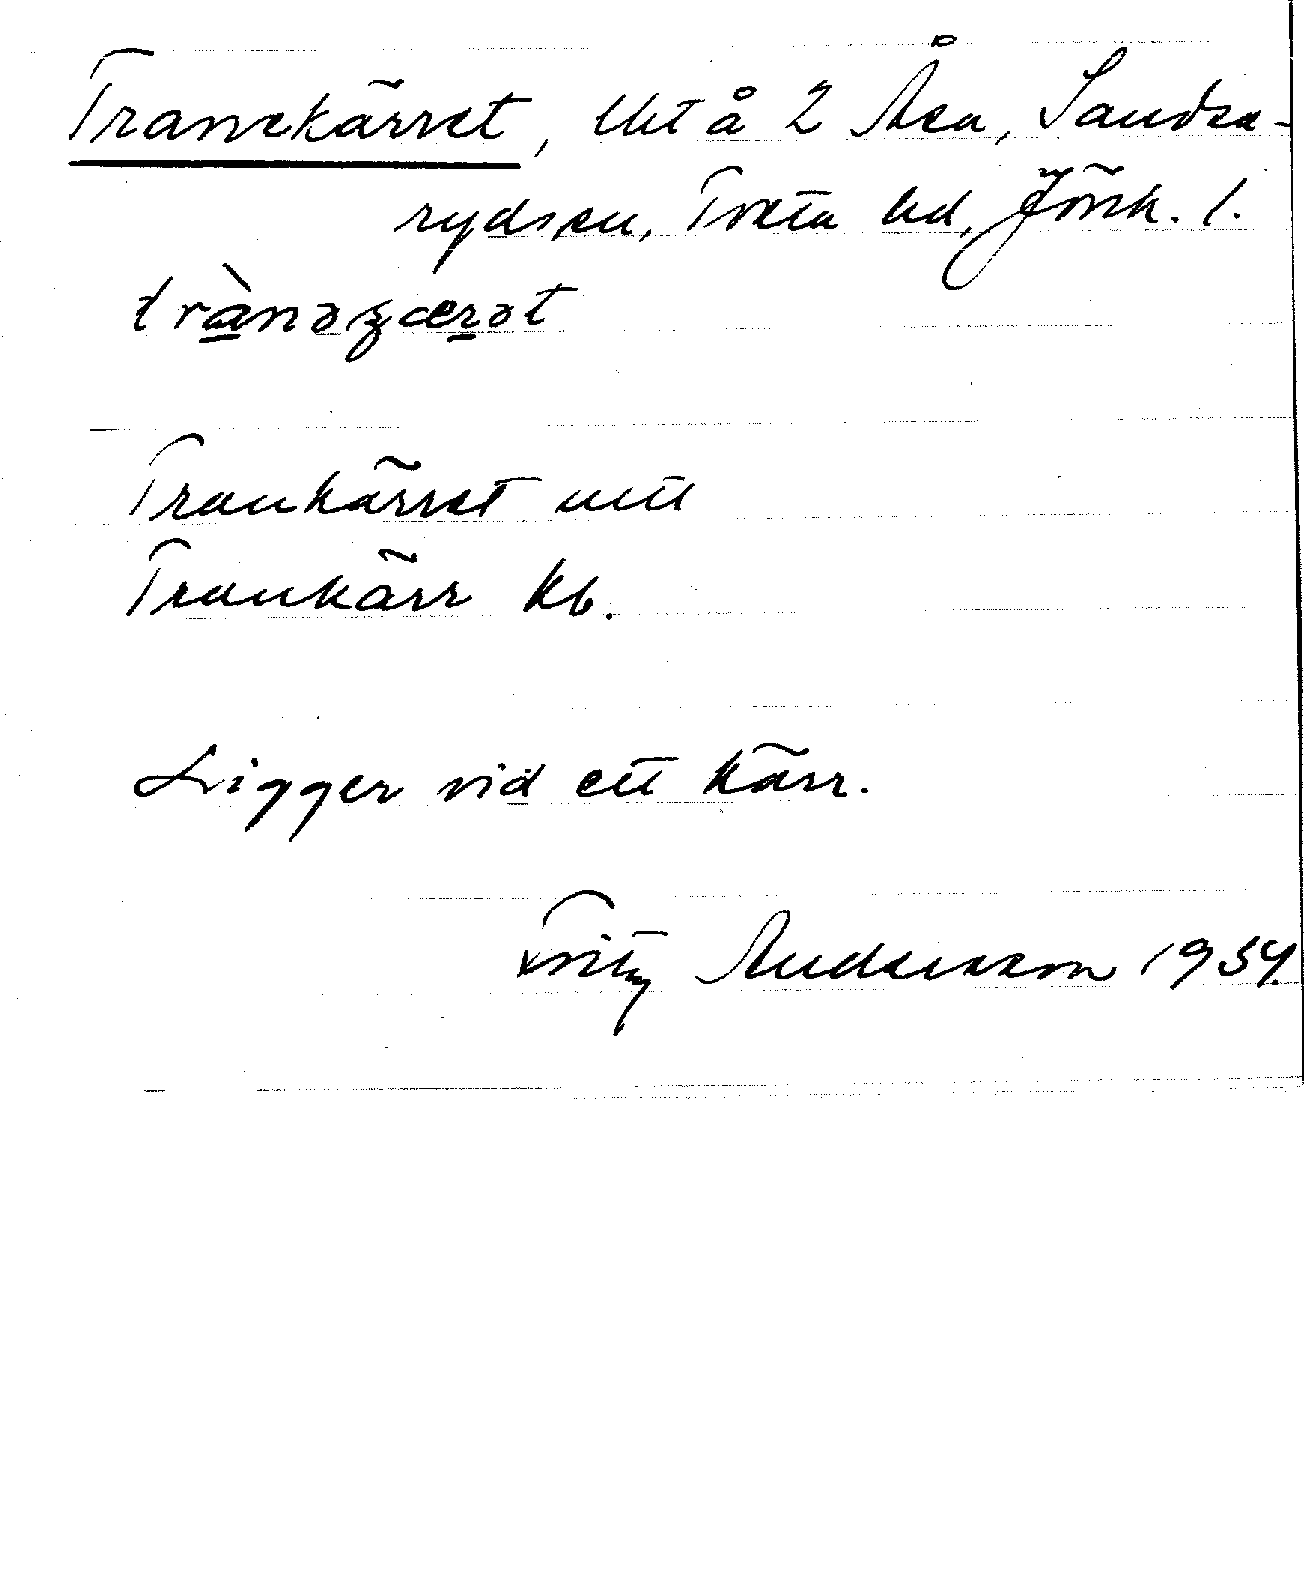 Tranekärret, lht å 2 Åsa, Sandse-
rydsen, Tveta hd, Jönk. l.
trànəʒærət
Trankärret uttl
Trankärr Kb.
Ligger vid ett kärr.
Fritz Andersson 1934.